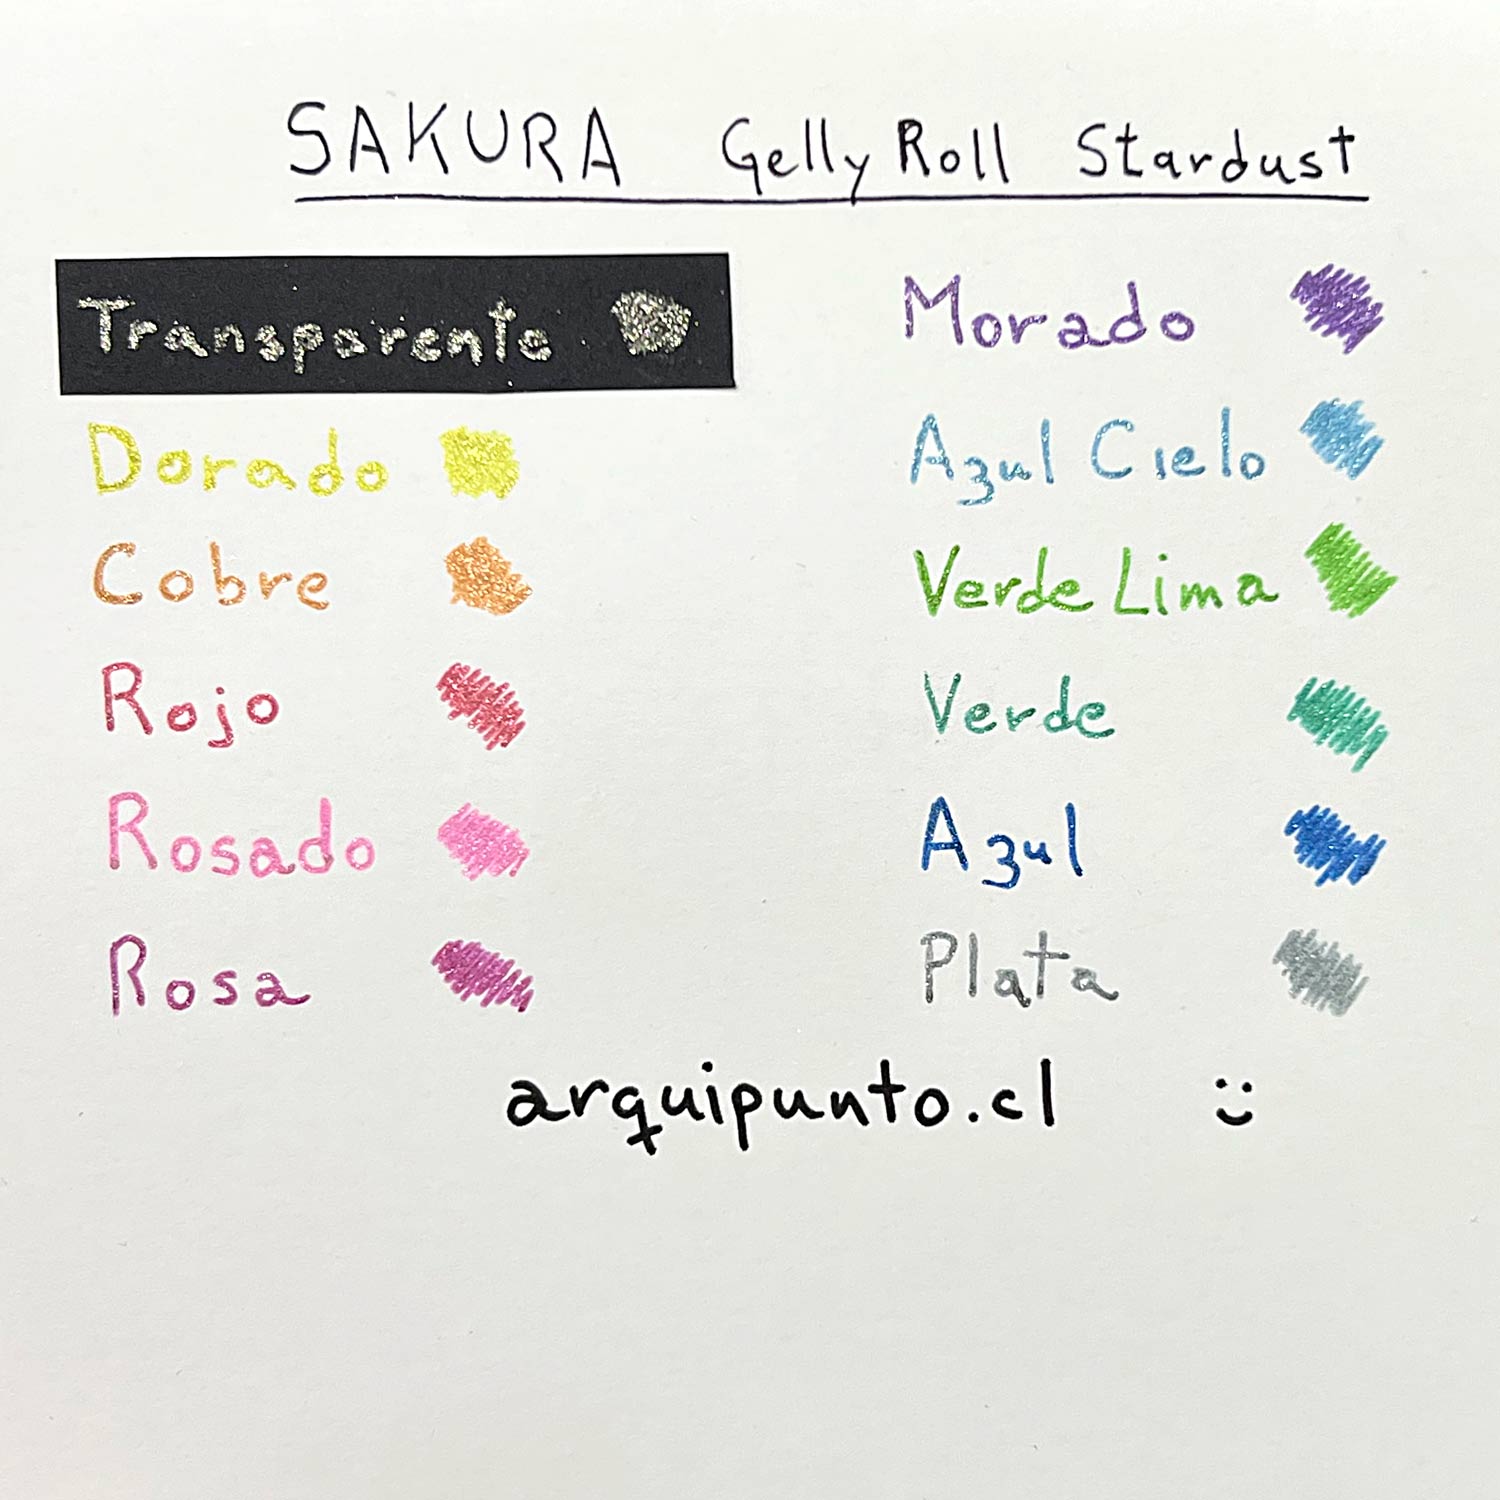 SAKURA Gelly Roll Stardust
Transparente
Dorado
Cobre
Rojo
Rosado
Rosa
Morado
Azul Cielo
Verde Lima
Verde
Azul
Plata
arquipunto.cl